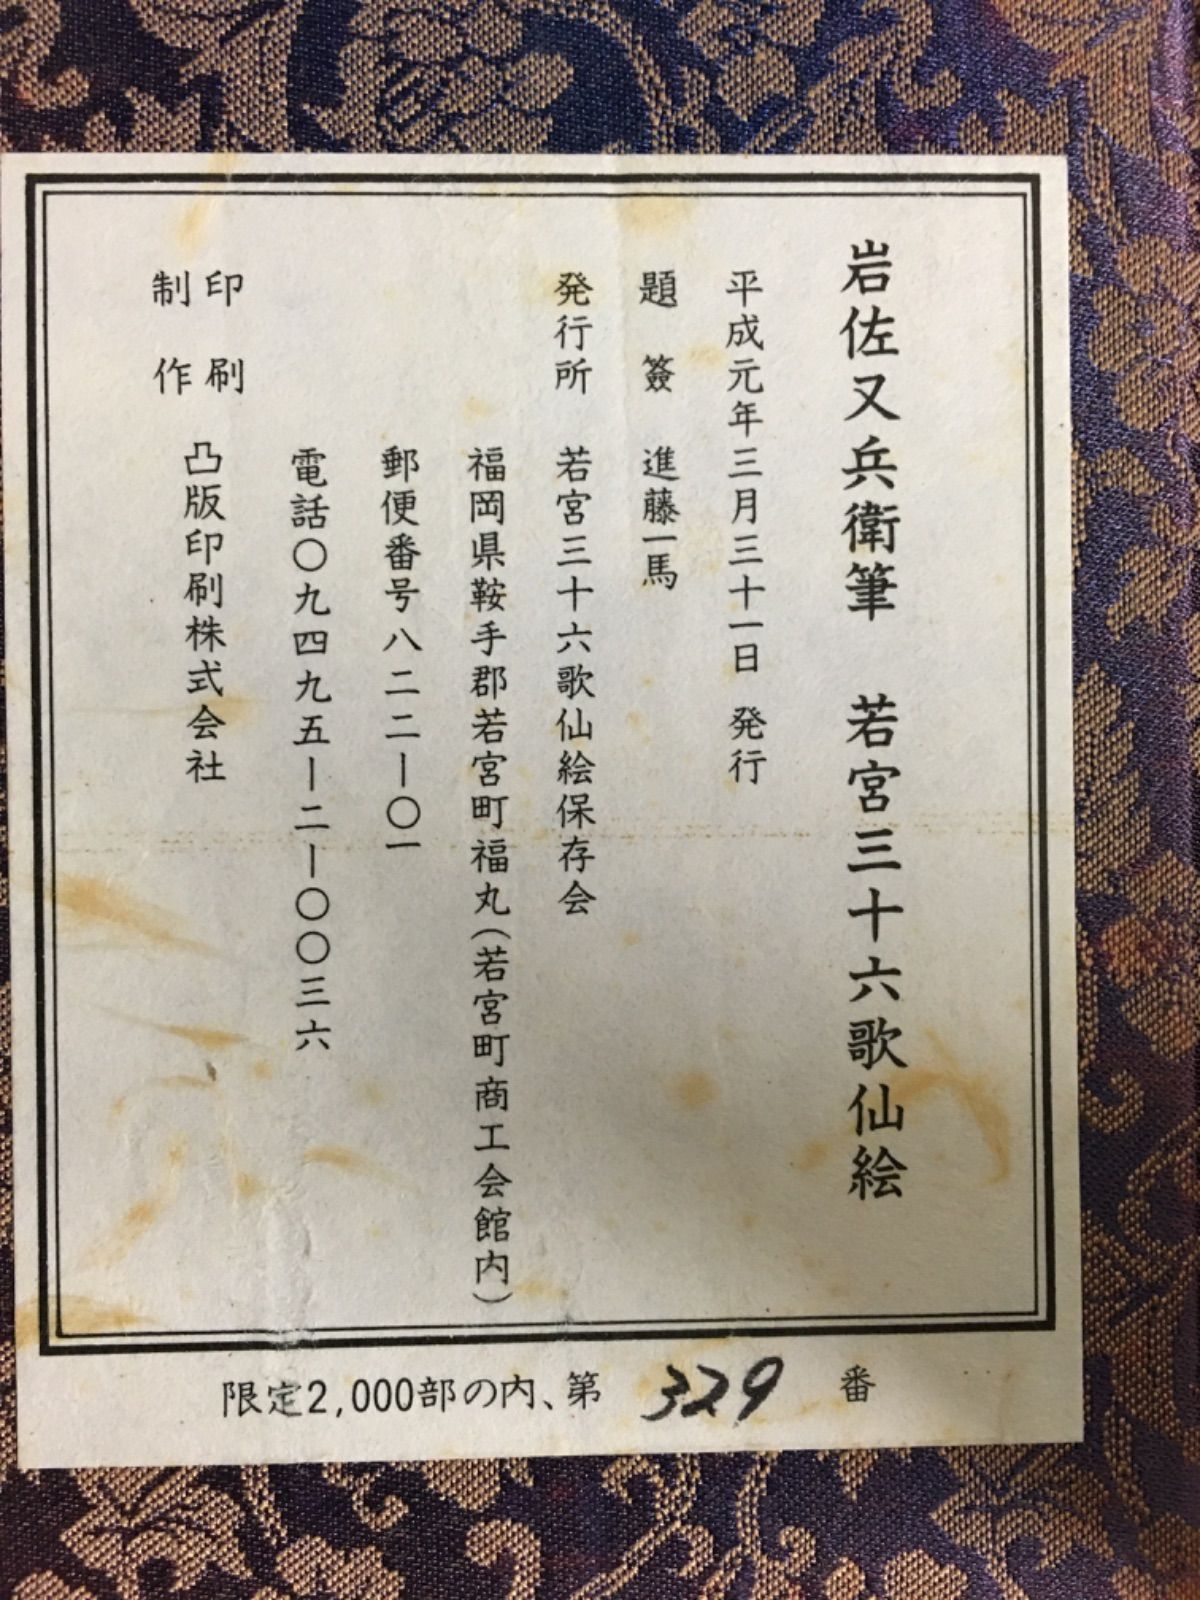 岩佐又兵衛筆　若宮三十六歌仙絵
平成元年三月三十一日　発行
題　簽　進藤一馬
発行所　若宮三十六歌仙絵保存会
福岡県鞍手郡若宮町福丸（若宮町商工会館内）
郵便番号八二二ー〇一
電話〇九四九五ー二ー〇〇三六
印　刷
制　作
凸版印刷株式会社
限定2,000部の内、第 329 番